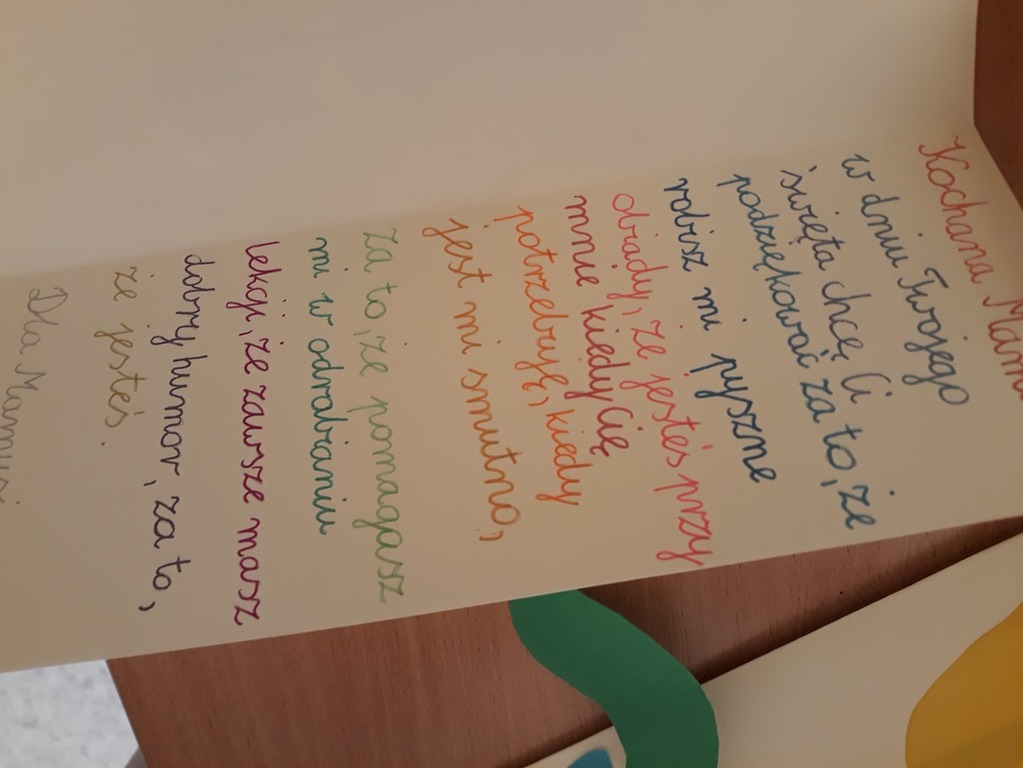 Kochana Mam
w dniu Twojego
święta chcę Ci
podziękować za to, że
robisz mi pyszne
obiady, że jesteś przy
mnie kiedy Cię
potrzebuję, kiedy
jest mi smutno,
za to, że pomagasz
mi w odrabianiu
lekcji, że zawsze masz
dobry humor, za to,
że jesteś.
Dla Mamusi